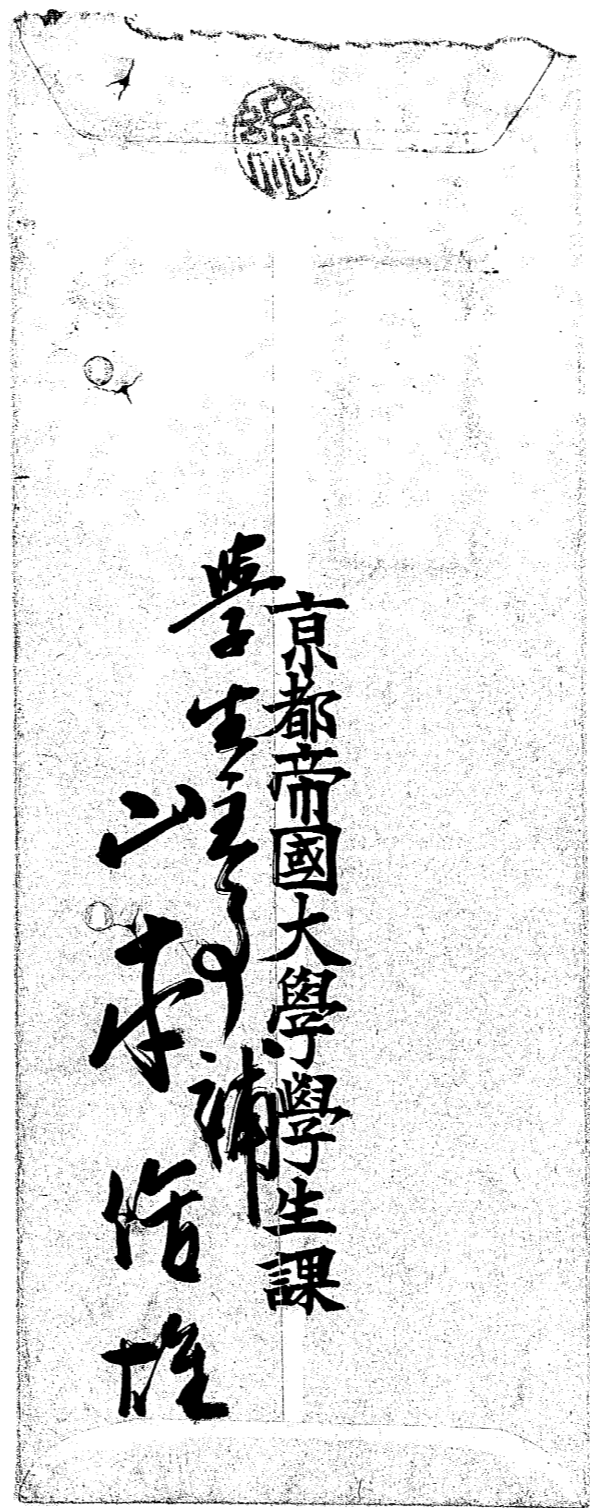 京都帝國大學學生課
學生主事補
山本雄